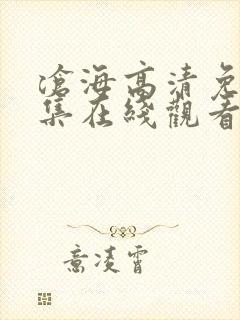 滄海高清免
集在綫觀看
意凌霄